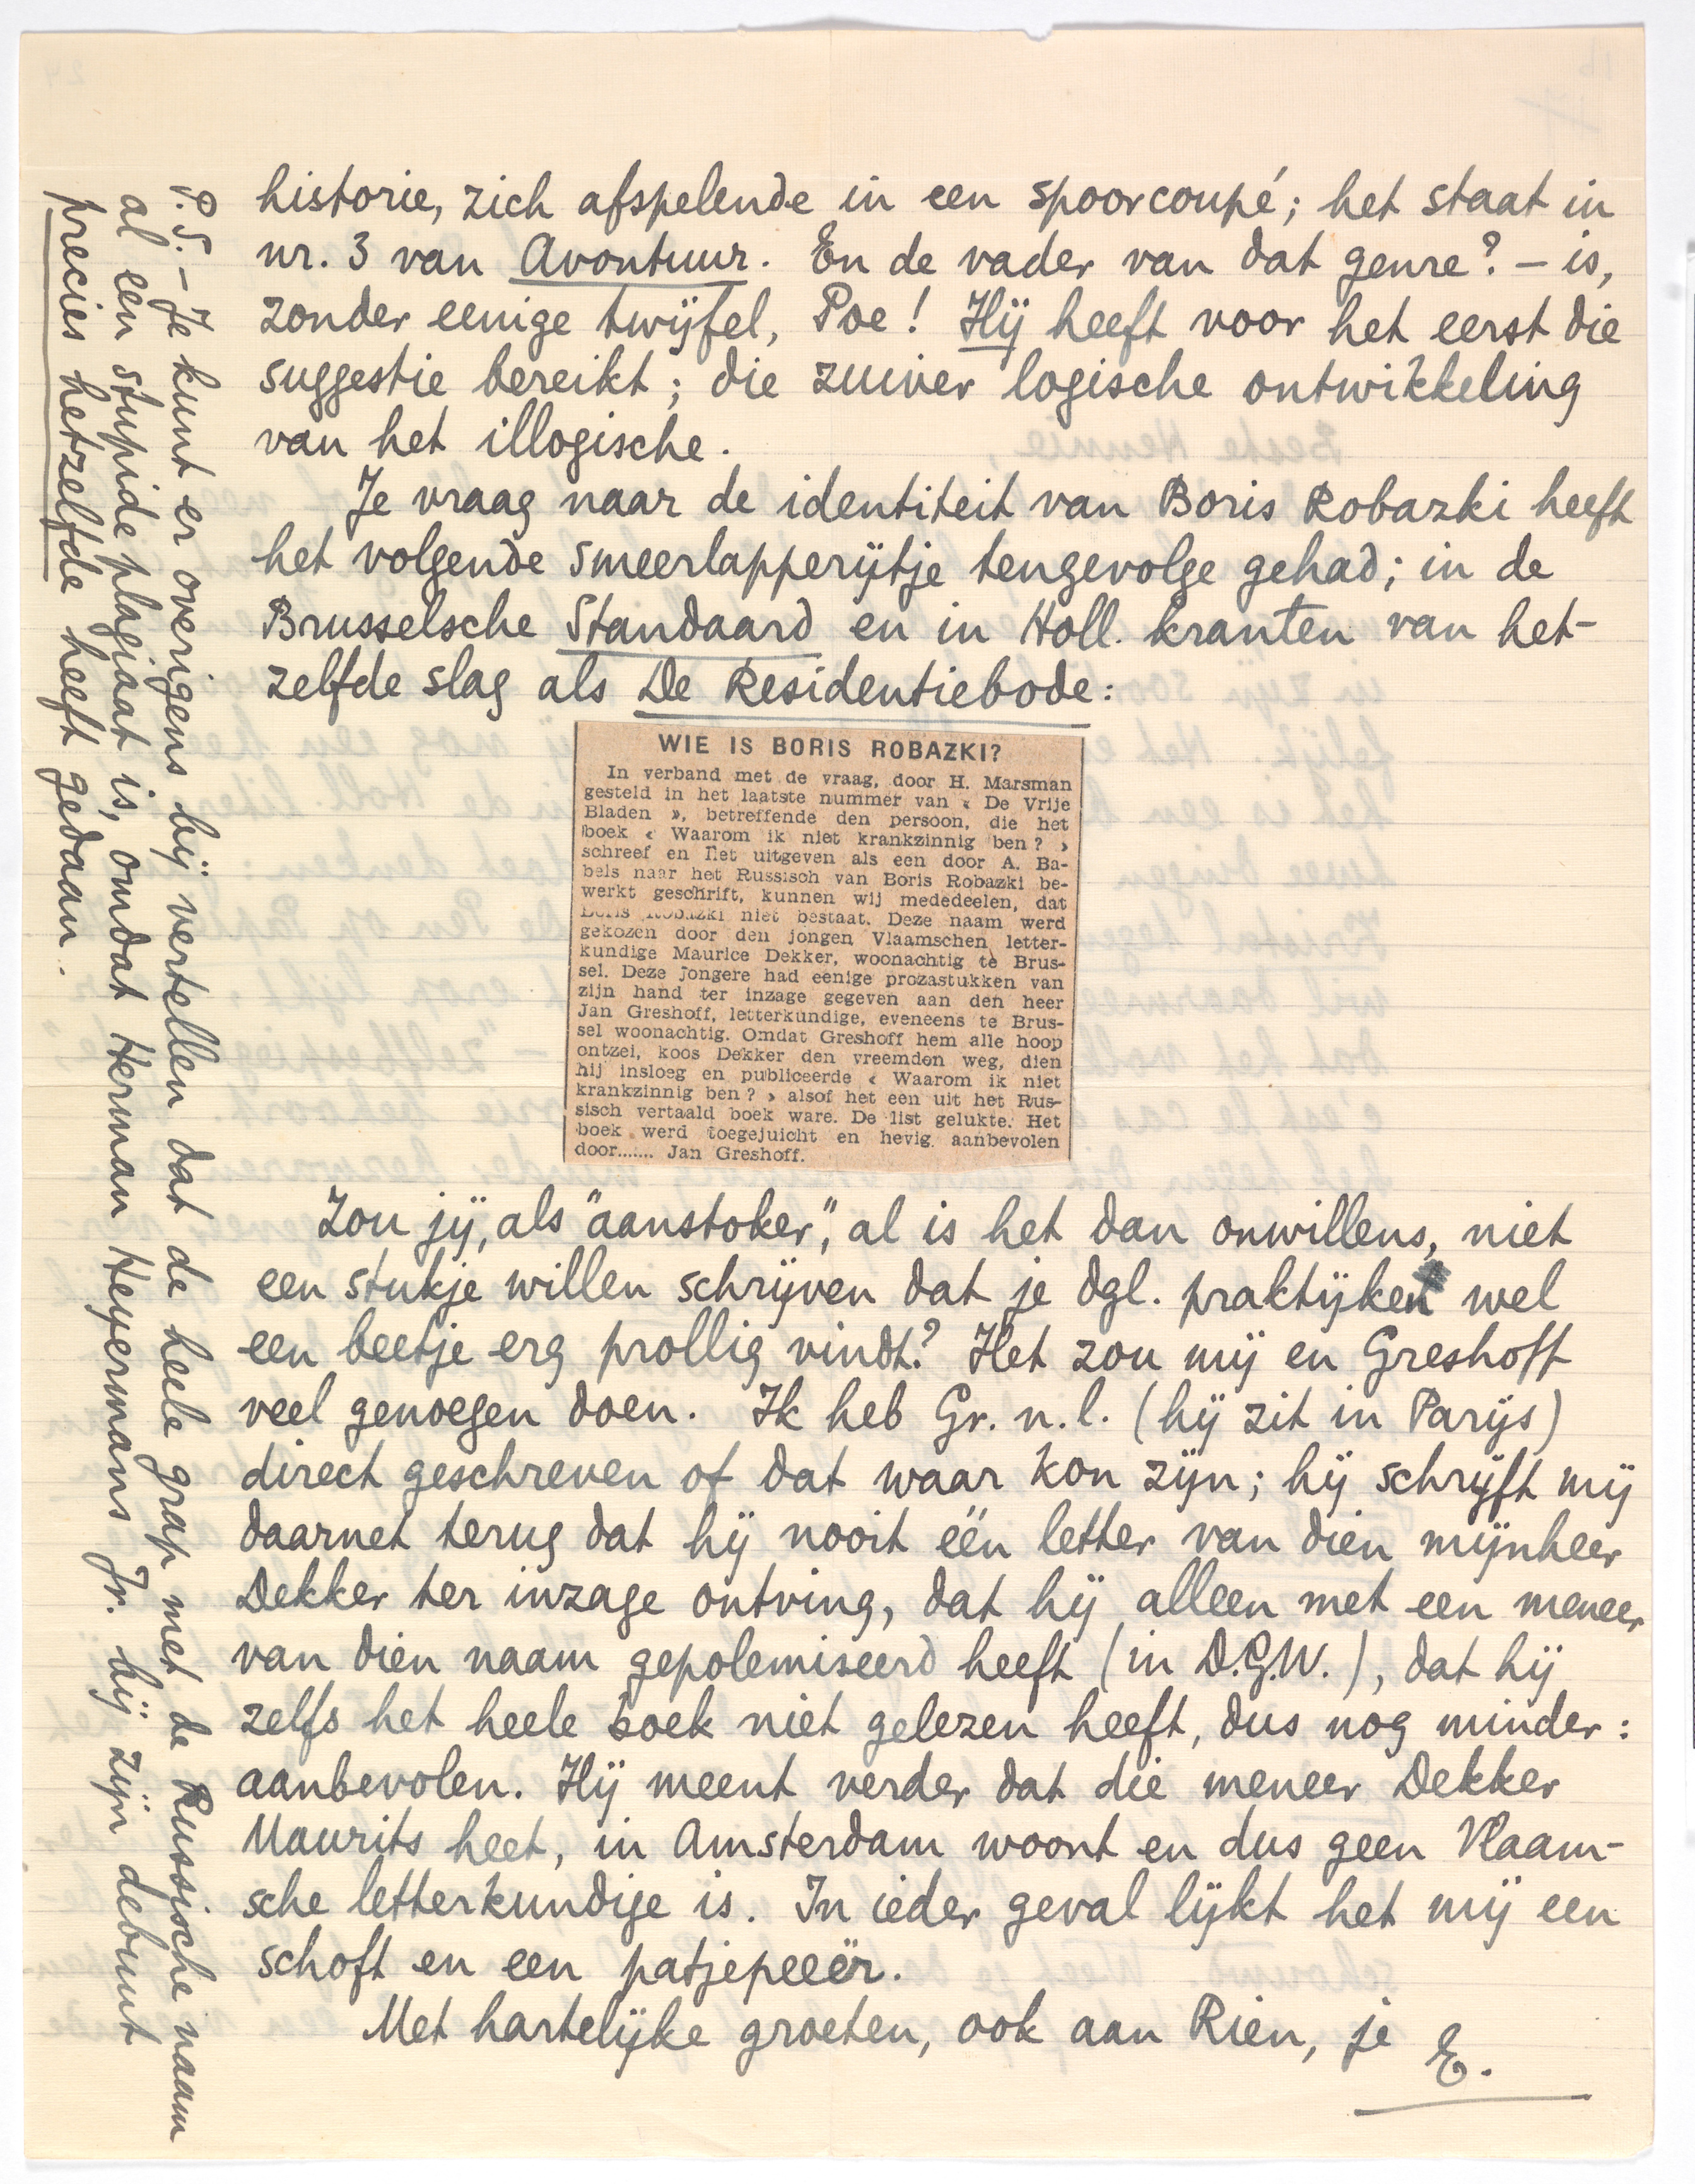 historie, zich afspelende in een spoorcoupé; het staat in
nr. 3 van Avontuur. En de vader van dat genre? – is,
zonder eenige twijfel, Poe! Hij heeft voor het eerst die
suggestie bereikt; die zuiver logische ontwikkeling
van het illogische.
Je vraag naar de identiteit van Boris Robazki heeft
het volgende smeerlapperijtje tengevolge gehad; in de
Brusselsche Standaard en in Holl. kranten van het-
zelfde slag als De Residentiebode:
WIE IS BORIS ROBAZKI?
In verband met de vraag, door H. Marsman
gesteld in het laatste nummer van « De Vrije
Bladen », betreffende den persoon, die het
boek « Waarom ik niet krankzinnig ben? »
schreef en liet uitgeven als een door A. Ba-
bels naar het Russisch van Boris Robazki be-
werkt geschrift, kunnen wij mededeelen, dat
Boris Robazki niet bestaat. Deze naam werd
gekozen door den jongen Vlaamschen letter-
kundige Maurice Dekker, woonachtig te Brus-
sel. Deze jongere had eenige prozastukken van
zijn hand ter inzage gegeven aan den heer
Jan Greshoff, letterkundige, eveneens te Brus-
sel woonachtig. Omdat Greshoff hem alle hoop
ontzei, koos Dekker den vreemden weg, dien
hij insloeg en publiceerde « Waarom ik niet
krankzinnig ben? » alsof het een uit het Rus-
sisch vertaald boek ware. De list gelukte. Het
boek werd toegejuicht en hevig aanbevolen
door....... Jan Greshoff.
Zou jij, als "aanstoker", al is het dan onwillens, niet
een stukje willen schrijven dat je dgl. praktijken wel
een beetje erg prollig vindt? Het zou mij en Greshoff
veel genoegen doen. Ik heb Gr. n.l. (hij zit in Parijs)
direct geschreven of dat waar kon zijn; hij schrijft mij
daarnet terug dat hij nooit één letter van dien mijnheer
Dekker ter inzage ontving, dat hij alleen met een meneer
van dien naam gepolemiseerd heeft (in D.G.W.), dat hij
zelfs het heele boek niet gelezen heeft, dus nog minder:
aanbevolen. Hij meent verder dat die meneer Dekker
Maurits heet, in Amsterdam woont en dus geen Vlaam-
sche letterkundige is. In ieder geval lijkt het mij een
schoft en een patjepeeër.
Met hartelijke groeten, ook aan Rien, je E.
P.S. – Je kunt er overigens bij vertellen dat de heele grap met de Russische naam
al een stupide plagiaat is, omdat Herman Heyermans Jr. bij zijn debuut
precies hetzelfde heeft gedaan.